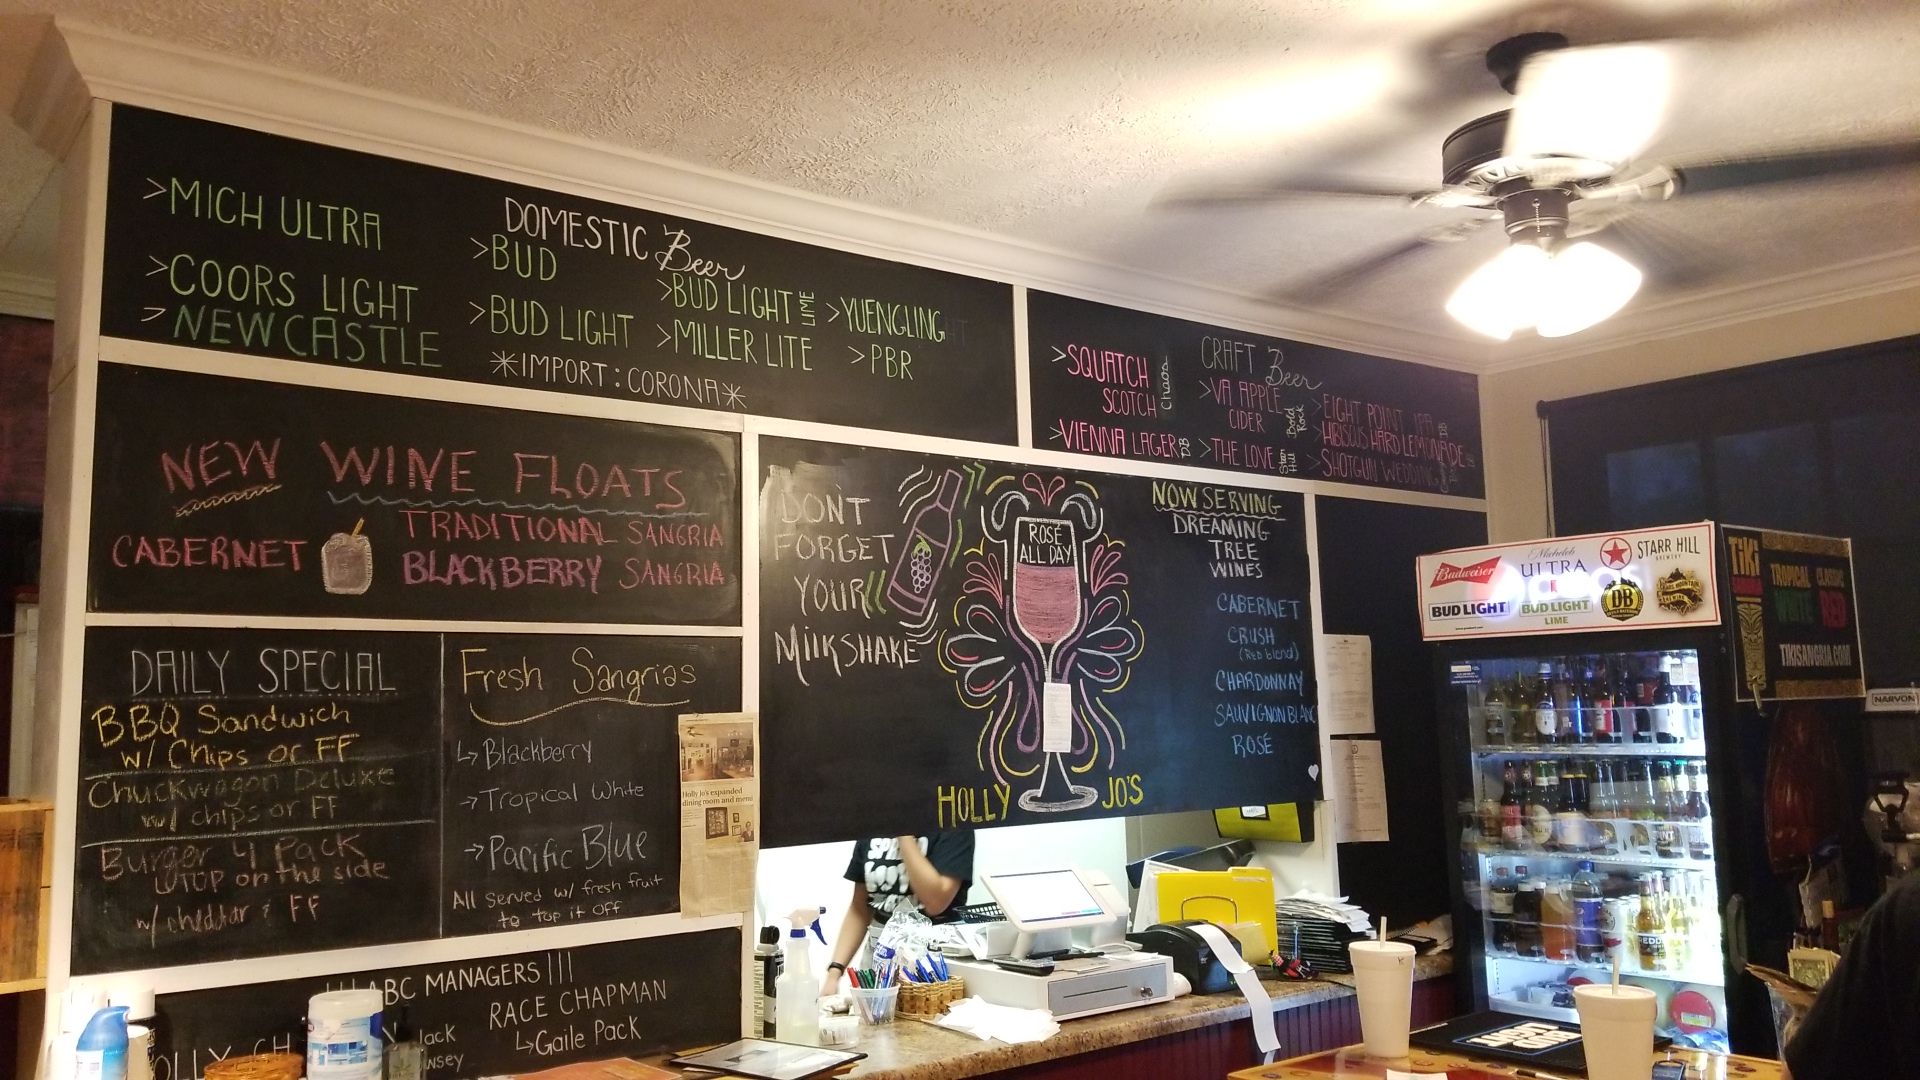 DOMESTIC Beer
>MICH ULTRA
>COORS LIGHT
>NEWCASTLE
>BUD
>BUD LIGHT
>BUD LIGHT LIME
>MILLER LITE
>YUENGLING
>PBR
*IMPORT: CORONA*
CRAFT Beer
>SQUATCH
SCOTCH
Chaos
>VIENNA LAGER DB
>VA APPLE
CIDER
Bold
Rock
>THE LOVE
Starr
Hill
>EIGHT POINT IPA DB
>HIBISCUS HARD LEMONADE
>SHOTGUN WEDDING
NEW WINE FLOATS
CABERNET
TRADITIONAL SANGRIA
BLACKBERRY SANGRIA
DAILY SPECIAL
BBQ Sandwich
w/ Chips or FF
Chuckwagon Deluxe
w/ chips or FF
Burger 4 Pack
w/TOP on the side
w/ cheddar & FF
Fresh Sangrias
Blackberry
Tropical White
Pacific Blue
All served w/ fresh fruit
to top it off
Holly Jo's expanded
dining room and menu
DON'T
FORGET
YOUR
MilKSHAKE
ROSÉ
ALL DAY
HOLLY JO'S
NOW SERVING
DREAMING
TREE
WINES
CABERNET
CRUSH
(Red blend)
CHARDONNAY
SAUVIGNON BLANC
ROSÉ
ABC MANAGERS
RACE CHAPMAN
Gaile Pack
Budweiser
Michelob
ULTRA
STARR HILL
BREWERY
BUD LIGHT
BUD LIGHT
LIME
DB
TIKI
SANGRIA
TROPICAL
WHITE
CLASSIC
RED
TIKISANGRIA.COM
NARVON